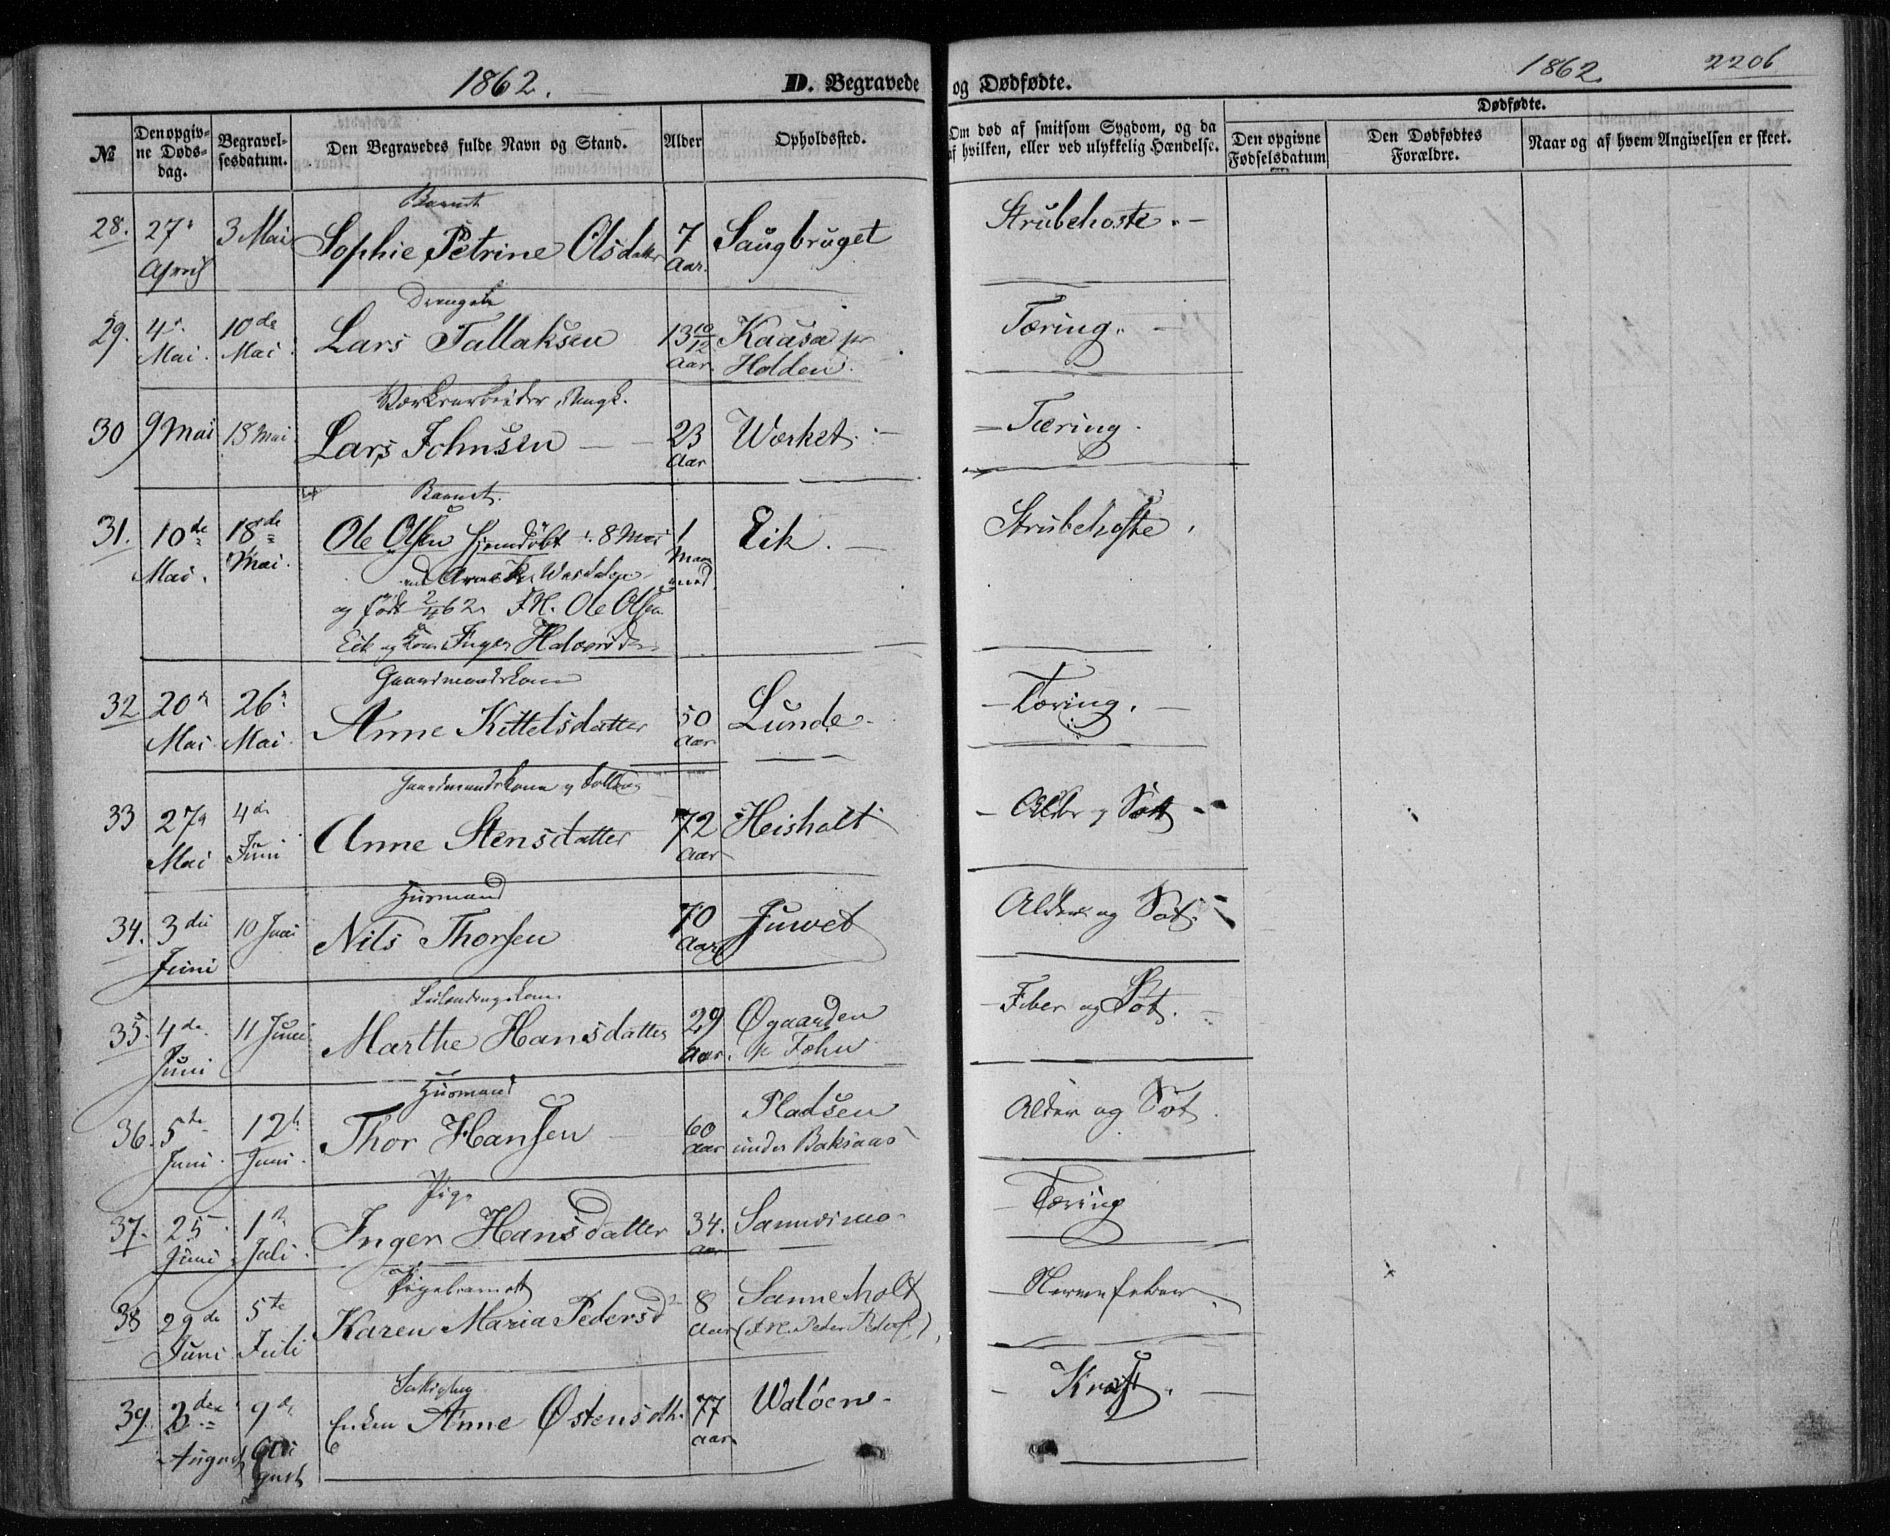 1862.
D. Begravede
og Dødfødte.
1862.
2206
№
Den opgiv-
ne Døds-
dag.
Begravel-
sesdatum.
Den Begravedes fulde Navn og Stand.
Alder
Opholdssted.
Om død af smitsom Sygdom, og da
af hvilken, eller ved ulykkelig Hændelse.
Dødfødte.
Den opgivne
Fødselsdatum
Den Dødfødtes
Forældre.
Naar og af hvem Angivelsen er skeet.
Barnet
28. 27 3 Mai Sophie Petrine Olsdatter 7 Saugbruget Strubehoste.
April Aar.
29. 4 10de Lars Tallaksen 13 10/12 Kaasa Tæring.
Mai. Mai Aar. Holden.
30 9 Mai 18 Mai Lars Johnsen 23 Værket. Tæring.
Aar
Barnet.
31. 10de 18de Ole Olsen hjemdøbt 8 Mai 1 Eik. Strubehoste
Mai. Mai. Maaned
og født 2/4 62. Ole Olsen
Eik og Kone Inger Halvorsd
Gaardmandskone
32 20 26 Anne Kittelsdatter 50 Lunde Tæring.
Mai Mai Aar
Gaardmandskone
33 27 4de Anne Stensdatter 72 Heisholt Alder og Sot
Mai Juni Aar
Husmand
34. 3die 10 Juni Nils Thorsen 70 Juvet Alder og Sot.
Juni Aar
35. 4de 11 Juni Marthe Hansdatter 29 Øgaarden Feber og Sot.
Juni Aar.
Husmand
36. 5te 12 Thor Hansen 60 Pladsen Alder og Sot.
Juni. Juni. Aar under Baksaas
Pige
37. 25 1 Inger Hansdatter 34. Sannesmo Tæring
Juni Juli Aar
Pigebarnet
38 29de 5te Karen Maria Pedersd 8 Sanneholt Nervefeber
Juni Juli Aar
39. 9de Enken Anne Østensdtr. 77 Valöen Kræft.
August August Aar